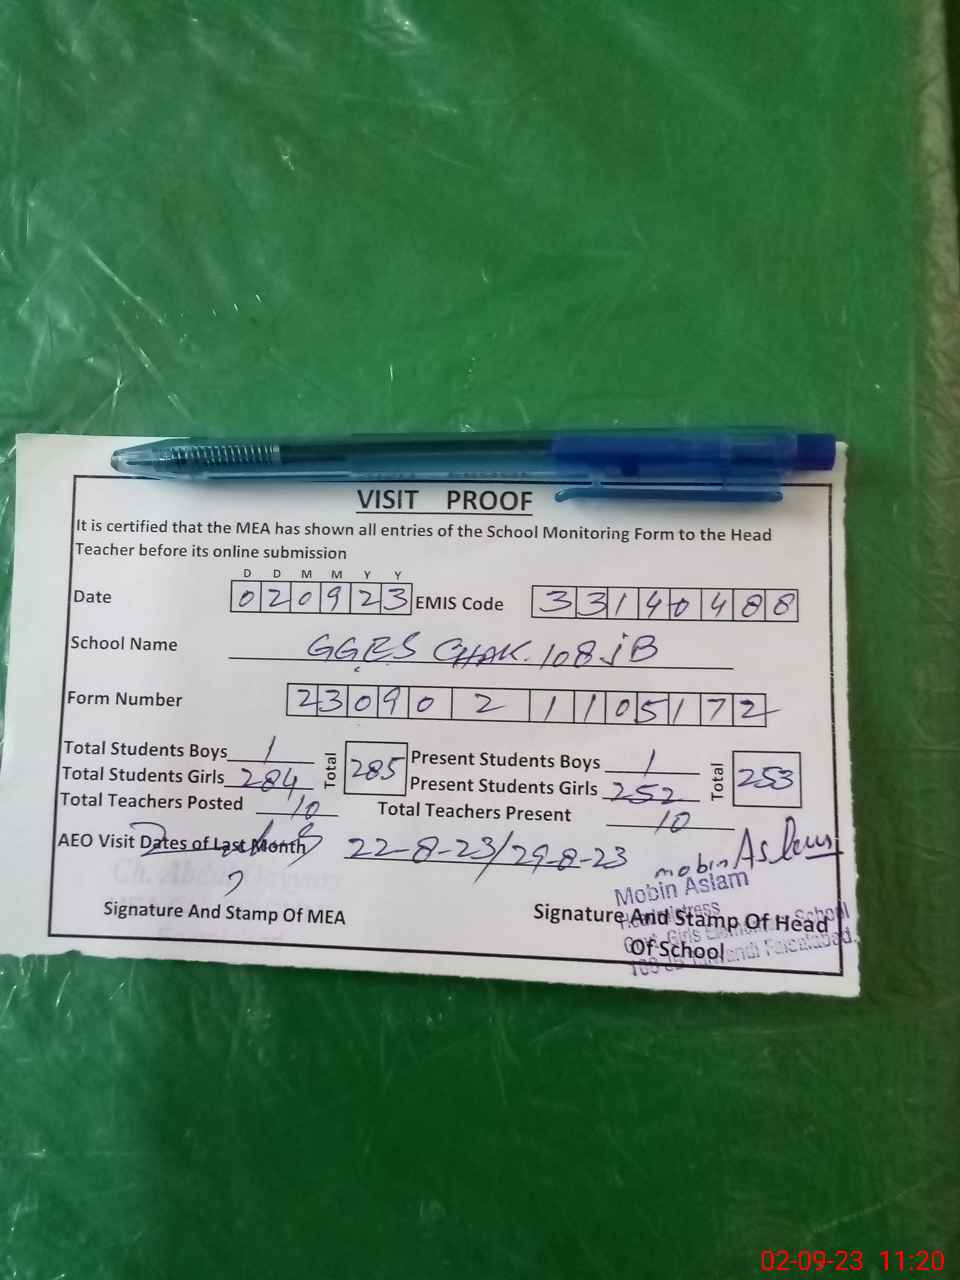 VISIT PROOF
It is certified that the MEA has shown all entries of the School Monitoring Form to the Head
Teacher before its online submission
D D M M Y Y
Date 0 2 0 9 2 3 EMIS Code 3 3 1 4 0 4 8 8
School Name GGES CHAK. 108 JB
Form Number 2 3 0 9 0 2 1 1 0 5 1 7 2
Total Students Boys 1 Total 285 Present Students Boys 1 Total 253
Total Students Girls 284 Present Students Girls 252
Total Teachers Posted 10 Total Teachers Present 10
AEO Visit Dates of Last Month 22-8-23/29-8-23
mobin Aslam
Mobin Aslam
Signature And Stamp Of MEA Signature And Stamp Of Head
Of School
Govt. Girls School
Faisalabad
02-09-23 11:20